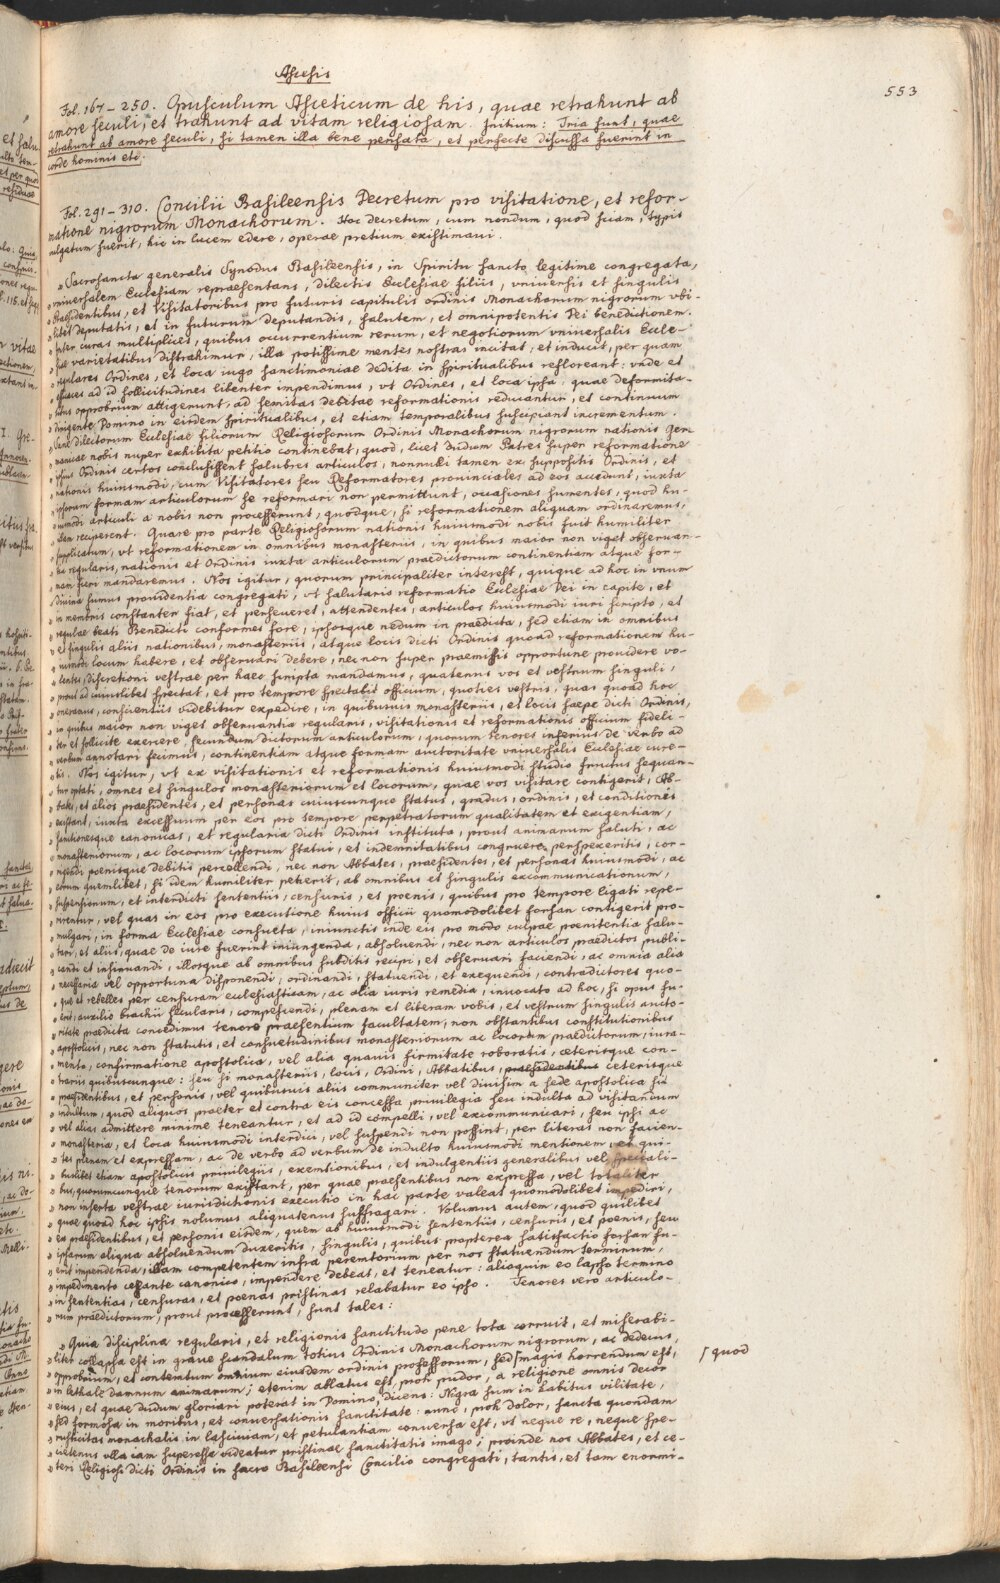 Ascesis
553
Fol. 167–250. Opusculum Asceticum de his, quae retrahunt ab
amore seculi, et trahunt ad vitam religiosam. Initium: Tria sunt, quae
retrahunt ab amore seculi, si tamen illa bene pensata, et perfecte discussa fuerint in
corde hominis etc.
Fol. 291–310. Concilii Basileensis Decretum pro visitatione, et refor-
matione nigrorum Monachorum. Hoc decretum, cum nondum, quod sciam, typis
vulgatum fuerit, hic in lucem edere, operae pretium existimavi.
„Sacrosancta generalis Synodus Basileensis, in Spiritu sancto legitime congregata,
„vniversalem Ecclesiam repraesentans, dilectis Ecclesiae filiis, vniversis et singulis
„Praesidentibus, et Visitatoribus pro futuris capitulis ordinis Monachorum nigrorum vbi-
„libet deputatis, et in futurum deputandis, salutem, et omnipotentis Dei benedictionem.
„Inter curas multiplices, quibus occurrentium rerum, et negotiorum vniversalis Eccle-
„siae varietatibus distrahimur, illa potissime mentes nostras incitat, et inducit, per quam
„regulares Ordines, et loca iugo sanctimoniae dedita in spiritualibus reflloreant: vnde et
„efficaces ad id sollicitudines libenter impendimus, vt Ordines, et loca ipsa, quae deformita-
„tibus opprobrium attigerunt, ad semitas debitae reformationis reducantur, et continuum
„dirigente Domino in eisdem spiritualibus, et etiam temporalibus suscipiant incrementum.
„Sane dilectorum Ecclesiae filiorum Religiosorum Ordinis Monachorum nigrorum nationis Ger-
„manicae nobis nuper exhibita petitio continebat, quod, licet dudum Patres super reformatione
„ipsius Ordinis certos conclusissent salubres articulos, nonnulli tamen ex suppositis Ordinis, et
„nationis huiusmodi, cum Visitatores seu Reformatores provinciales ad eos accedunt, iuxta
„ipsorum formam articulorum se reformari non permittunt, occasiones sumentes, quod hu-
„iusmodi articuli a nobis non processerunt, quodque, si reformationem aliquam ordinaremus,
„illam reciperent. Quare pro parte Religiosorum nationis huiusmodi nobis fuit humiliter
„supplicatum, vt reformationem in omnibus monasteriis, in quibus maior non viget observan-
„tia regularis, nationis et Ordinis iuxta articulorum praedictorum continentiam atque for-
„mam fieri mandaremus. Nos igitur, quorum principaliter interest, quique ad hoc in vnum
„divina sumus providentia congregati, vt salutaris reformatio Ecclesiae Dei in capite, et
„in membris constanter fiat, et perseveret, attendentes, articulos huiusmodi iuri scripto, et
„regulae beati Benedicti conformes fore, ipsosque nedum in praedicta, sed etiam in omnibus
„et singulis aliis nationibus, monasteriis, atque locis dicti Ordinis quoad reformationem hu-
„iusmodi locum habere, et observari debere, nec non super praemissis opportune providere vo-
„lentes, discretioni vestrae per haec scripta mandamus, quatenus vos et vestrum singuli,
„prout ad cuiuslibet spectat, et pro tempore spectabit officium, quoties vestris, quas quoad hoc
„oneramus, conscientiis videbitur expedire, in quibusuis monasteriis, et locis saepe dicti Ordinis,
„in quibus maior non viget observantia regularis, visitationis et reformationis officium fideli-
„ter et sollicite exercere, secundum dictorum articulorum, quorum tenores inferius de verbo ad
„verbum annotari fecimus, continentiam atque formam auctoritate vniversalis Ecclesiae cure-
„tis. Nos igitur, vt ex visitationis et reformationis huiusmodi studio fructus sequan-
„tur optati, omnes et singulos monasteriorum et locorum, quae vos visitare contigerit, Ab-
„bates, et alios praesidentes, et personas cuiuscunque status, gradus, ordinis, et conditionis
„existant, iuxta excessuum per eos pro tempore perpetratorum qualitatem et exigentiam,
„sanctionesque canonicas, et regularia dicti Ordinis instituta, prout animarum saluti, ac
„monasteriorum, ac locorum ipsorum statui, et indemnitatibus congruere perspexeritis, cor-
„rigendi poenisque debitis percellendi, nec non Abbates, praesidentes, et personas huiusmodi, ac
„eorum quemlibet, si idem humiliter petierit, ab omnibus et singulis excommunicationum,
„suspensionum, et interdicti sententiis, censuris, et poenis, quibus pro tempore ligati repe-
„rirentur, vel quas in eos pro executione huius officii quomodolibet forsan contigerit pro-
„mulgari, in forma Ecclesiae consueta, iniunctis inde eis pro modo culpae poenitentia salu-
„tari, et aliis, quae de iure fuerint iniungenda, absolvendi, nec non articulos praedictos publi-
„candi et insinuandi, illosque ab omnibus subditis recipi, et observari faciendi, ac omnia alia
„necessaria vel opportuna disponendi, ordinandi, statuendi, et exequendi, contradictores quo-
„que et rebelles per censuram ecclesiasticam, ac alia iuris remedia, invocato ad hoc, si opus fu-
„erit, auxilio brachii secularis, compescendi, plenam et liberam vobis, et vestrum singulis aucto-
„ritate praedicta concedimus tenore praesentium facultatem, non obstantibus constitutionibus
„apostolicis, nec non statutis, et consuetudinibus monasteriorum ac locorum praedictorum, iura-
„mento, confirmatione apostolica, vel alia quauis firmitate roboratis, ceterisque con-
„trariis quibuscunque: seu si monasteriis, locis, Ordini, Abbatibus, praesidentibus ceterisque
„praesidentibus, et personis, vel quibusuis aliis communiter vel divisim a sede apostolica sit
„indultum, quod aliquos praeter et contra eis concessa privilegia seu indulta ad visitandum
„vel alias admittere minime teneantur, et ad id compelli, vel excommunicari, seu ipsi ac
„monasteria, et loca huiusmodi interdici, vel suspendi non possint, per literas non facien-
„tes plenam et expressam, ac de verbo ad verbum de indulto huiusmodi mentionem, et qui-
„buslibet etiam apostolicis privilegiis, exemtionibus, et indulgentiis generalibus vel speciali-
„bus, quorumcunque tenorum existant, per quae praesentibus non expressa, vel totaliter
„non inserta vestrae iurisdictionis executio in hac parte valeat quomodolibet impediri,
„quae quoad hoc ipsis nolumus aliquatenus suffragari. Volumus autem, quod quilibet
„ex praesidentibus, et personis eisdem, quem ab huiusmodi sententiis, censuris, et poenis, seu
„ipsarum aliqua absolvendum duxeritis, singulis, quibus propterea satisfactio forsan fu-
„erit impendenda, illam competentem infra peremtorium per nos statuendum terminum,
„impedimento cessante canonico, impendere debeat, et teneatur: alioquin eo lapso termino
„in sententias, censuras, et poenas pristinas relabatur eo ipso. Tenores vero articulo-
„rum praedictorum, prout processerunt, sunt tales:
„Quia disciplina regularis, et religionis sanctitudo pene tota corruit, et miserabi-
„liter collapsa est in grave scandalum totius Ordinis Monachorum nigrorum, ac dedecus,
„opprobrium, et contemtum omnium eiusdem ordinis professorum, sed ⌠magis horrendum est, ⌠quod
„in lethale damnum animarum; etenim ablatus est, proh pudor, a religione omnis decor
„eius, et quae dudum gloriari poterat in Domino, dicens: Nigra sum in habitus vilitate,
„sed formosa in moribus, et conversationis sanctitate: nunc, proh dolor, sancta quondam
„rusticitas monachalis in lasciviam, et petulantiam conversa est, vt neque re, neque spe-
„cietenus vlla iam superesse videatur pristinae sanctitatis imago; proinde nos Abbates, et ce-
„teri Religiosi dicti Ordinis in sacro Basileensi Concilio congregati, tantis, et tam enormi-